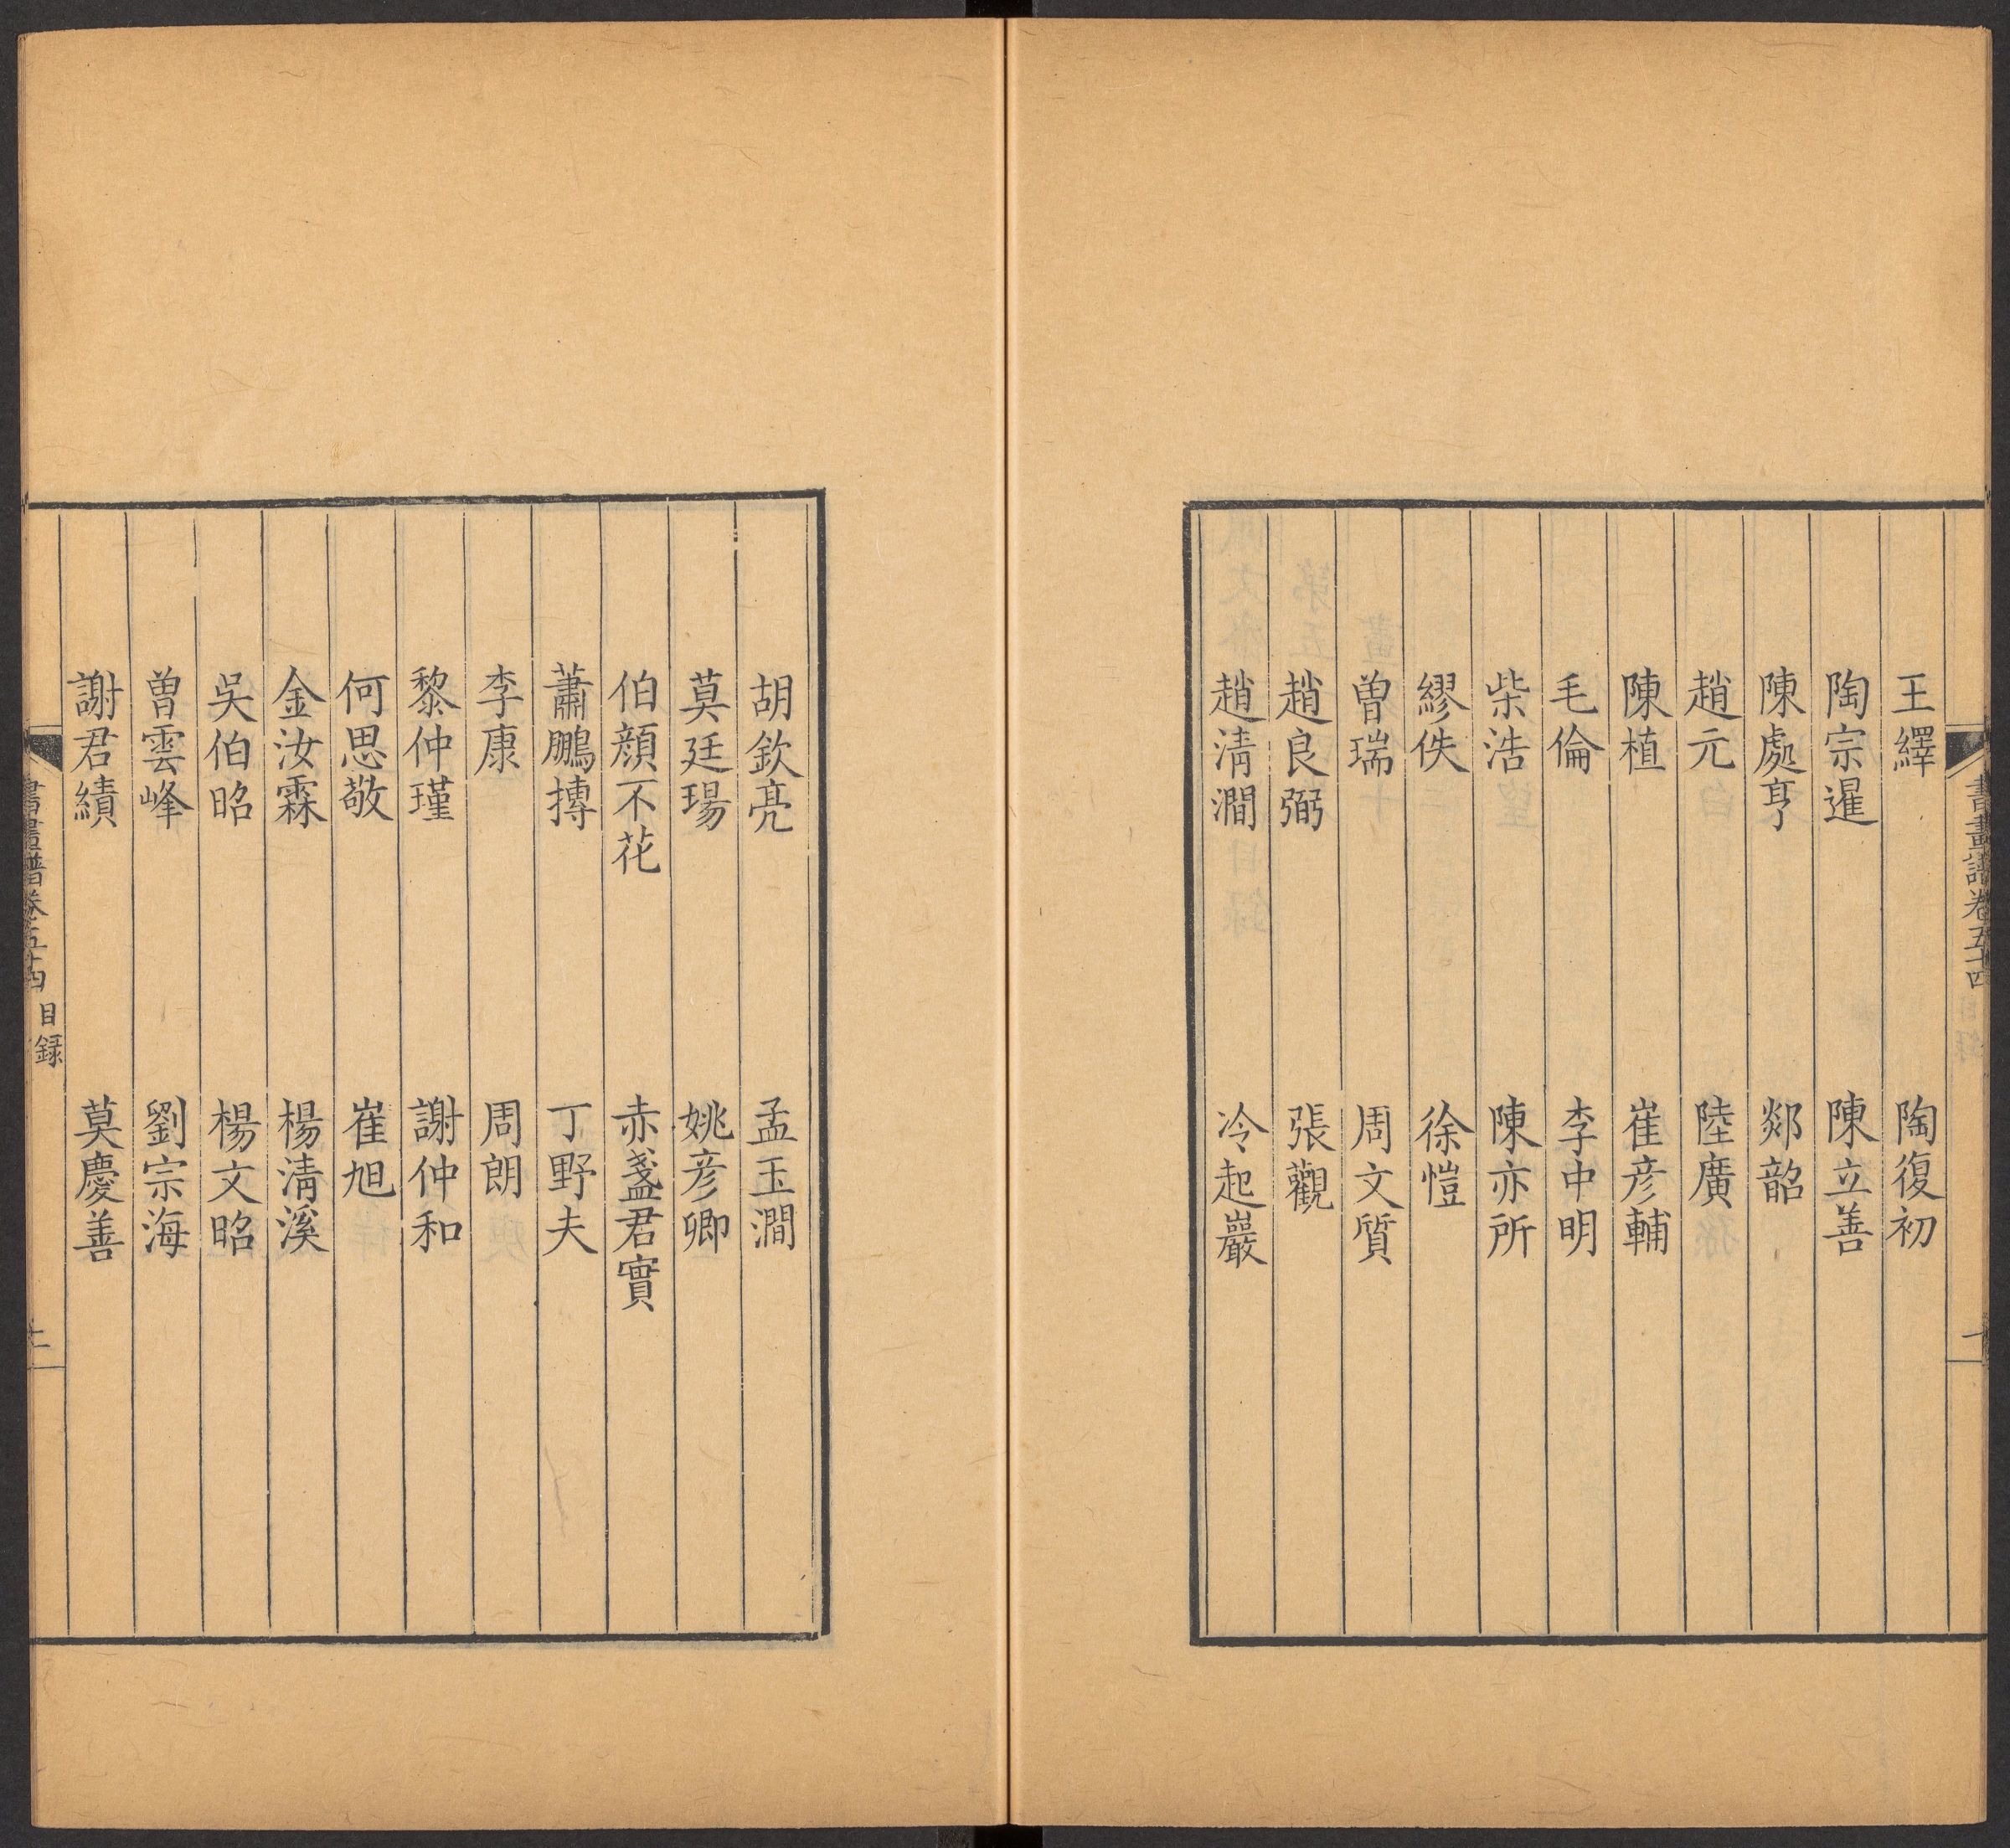 書畫譜卷五十四
王繹　陶復初
陶宗暹　陳立善
陳處亨　郯韶
趙元　陸廣
陳植　崔彥輔
毛倫　李中明
柴浩　陳亦所
繆佚　徐愷
曾瑞　周文質
趙良弼　張觀
趙清澗　冷起巖
胡欽亮　孟玉澗
莫廷瑒　姚彥卿
伯顏不花　赤盞君實
蕭鵬摶　丁野夫
李康　周朗
黎仲瑾　謝仲和
何思敬　崔旭
金汝霖　楊清溪
吳伯昭　楊文昭
曾雲峰　劉宗海
謝君績　莫慶善
書畫譜卷五十四　目錄